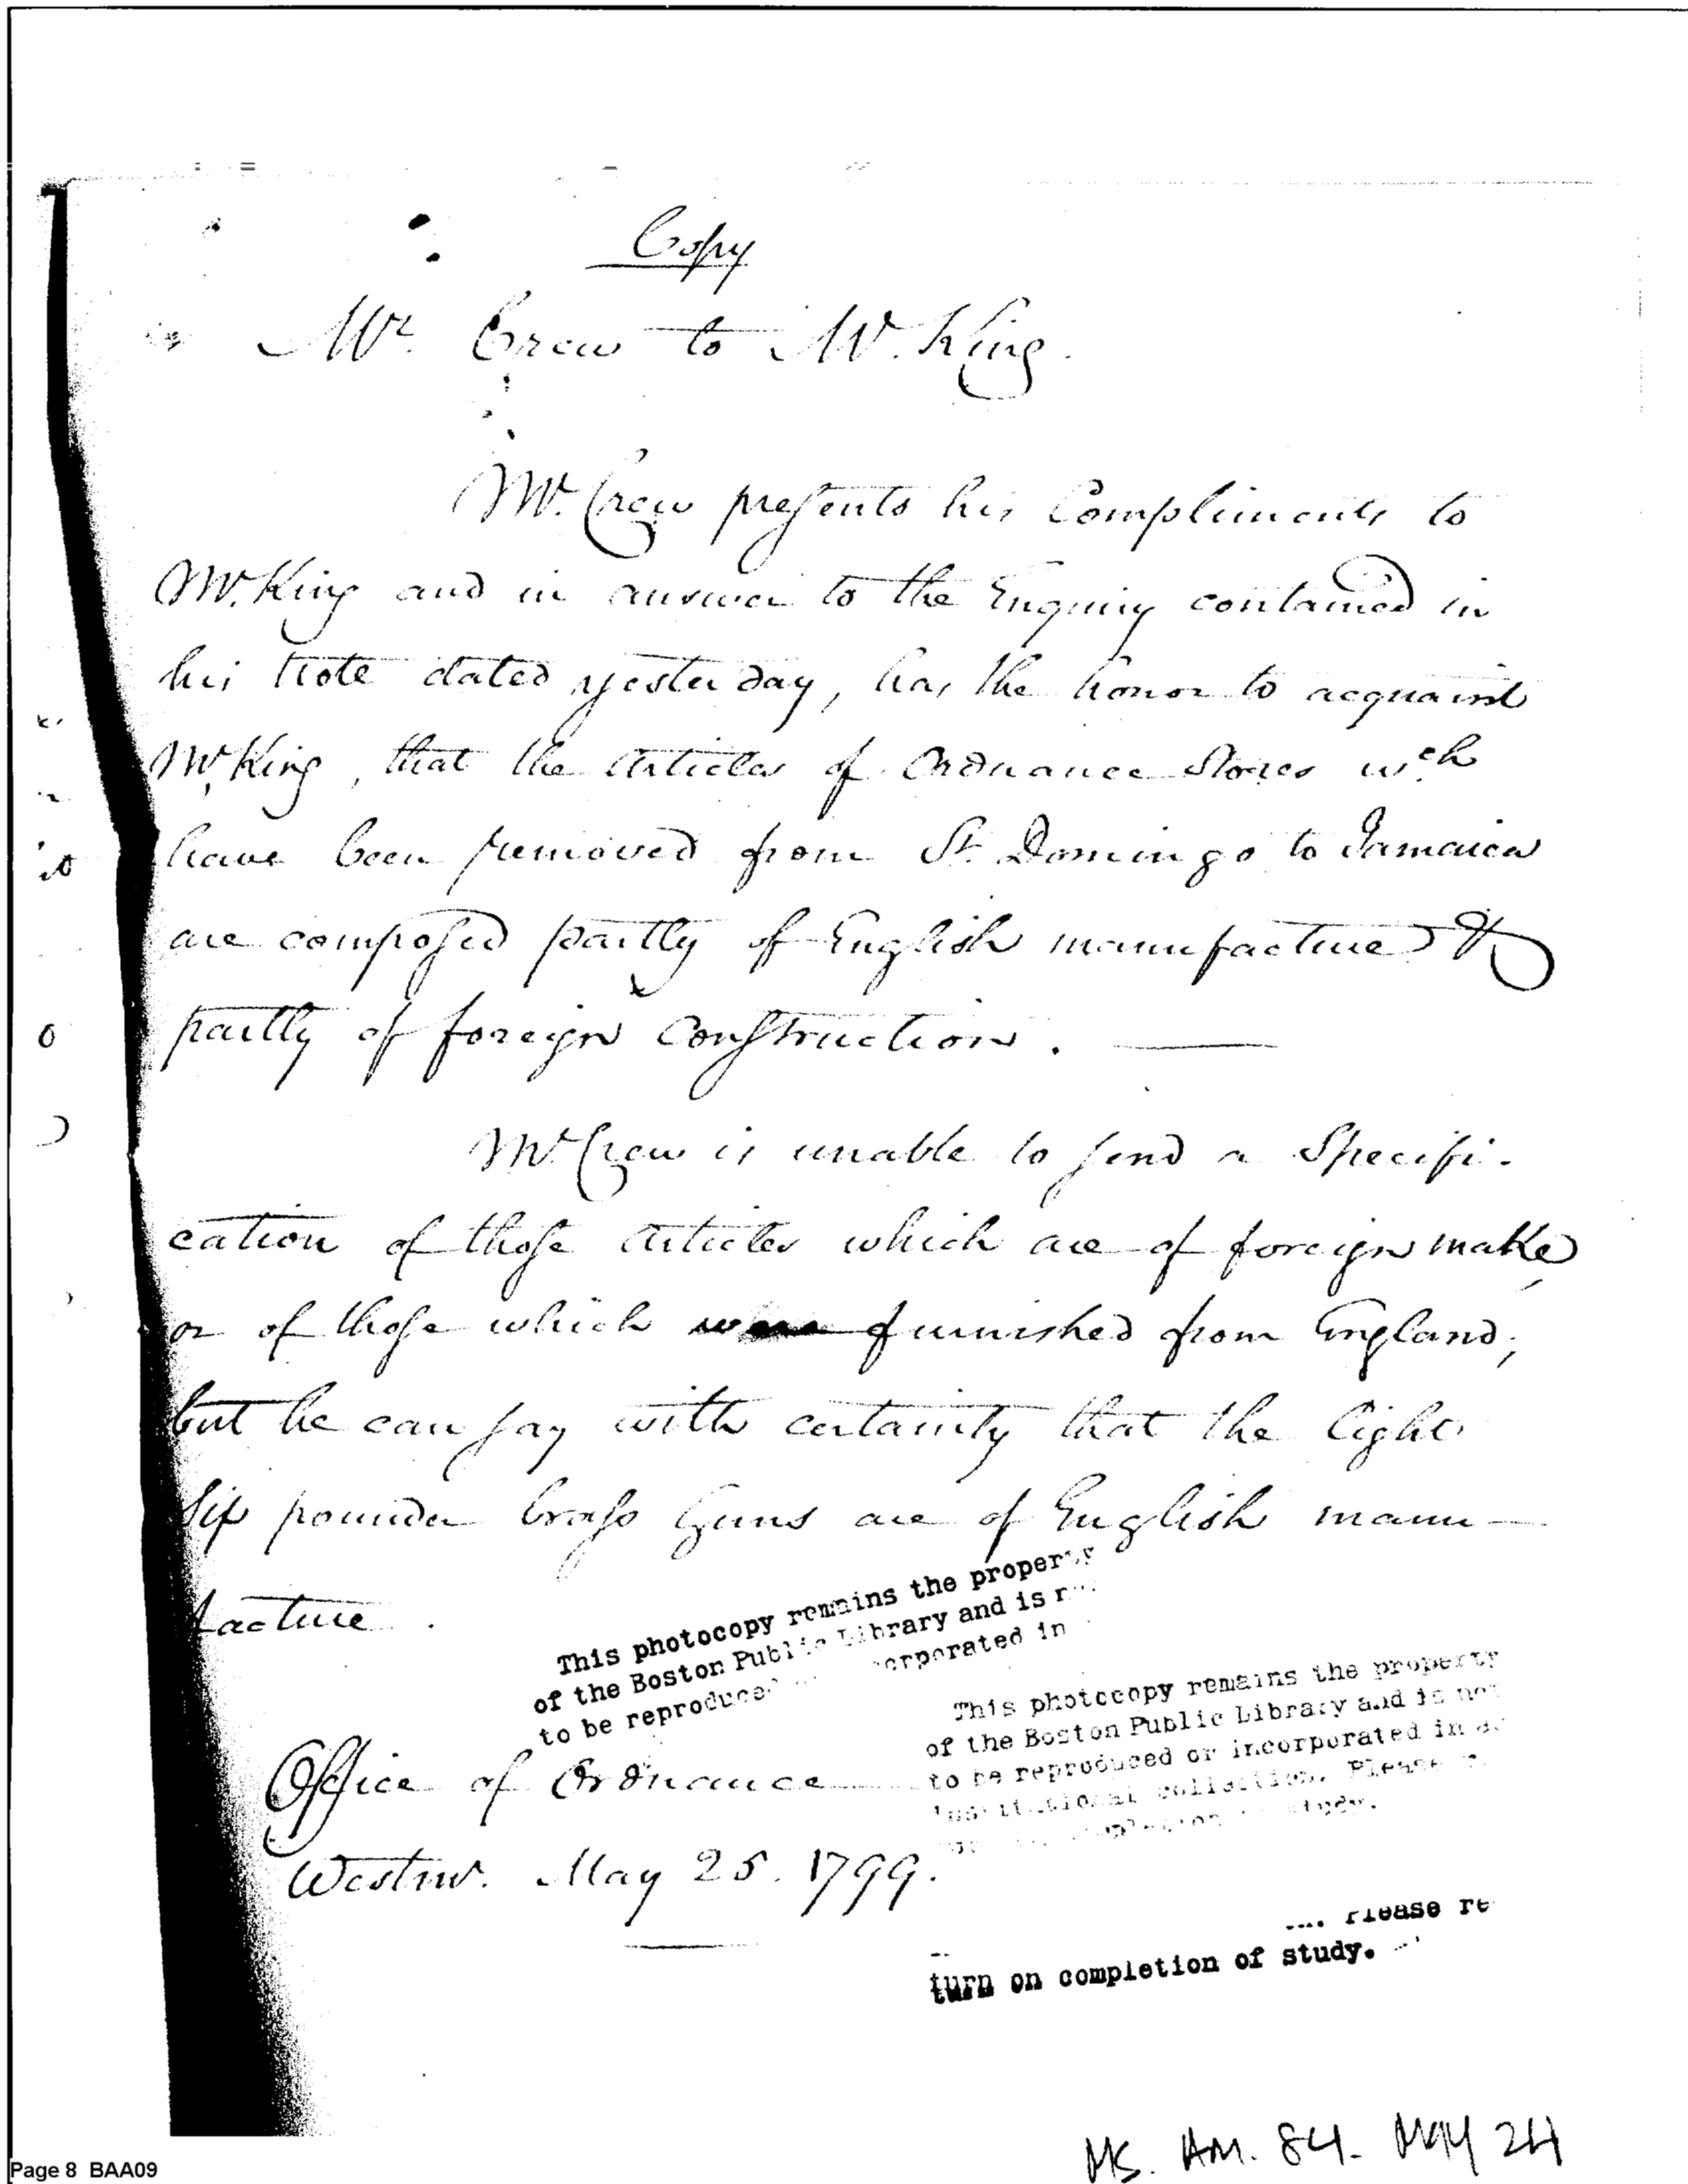 Copy
Mr. Crew to Mr. King.
Mr. Crew presents his Compliments to
Mr. King and in answer to the Enquiry contained in
his Note dated yesterday, has the honor to acquaint
Mr. King, that the Articles of Ordnance Stores wch
have been removed from St. Domingo to Jamaica
are composed partly of English manufacture &
partly of foreign Construction. —
Mr. Crew is unable to send a Specifi-
cation of those Articles which are of foreign make
or of those which were furnished from England;
but he can say with certainty that the light
Six pounder brass Guns are of English manu-
facture.
This photocopy remains the property
of the Boston Public Library and is
to be reproduced incorporated in
This photocopy remains the property
of the Boston Public Library and is not
to be reproduced or incorporated in
institutional collection. Please
study.
Office of Ordnance
Westmr. May 25. 1799.
Please re
turn on completion of study.
MS. AM. 84. MAY 24
Page 8 BAA09